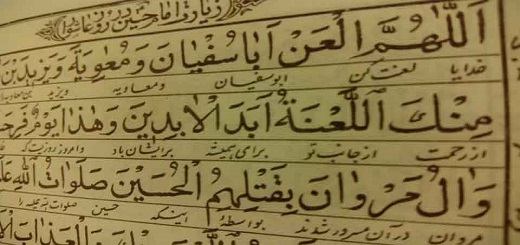 زیارت امام حسین در روز عاشورا
اَللّٰهُمَّ الْعَنْ اَبا سُفْیانَ وَ مُعٰوِیَةَ وَ یَزیدَ بْنَ
خدایا لعنت کن ابوسفیان و معاویه و یزید بن
مِنْكَ اَللَّعْنَةُ اَبَدَ الْاٰبِدینَ وَ هٰذا یَوْمٌ فَرِحَ
از رحمت از جانب تو برای همیشه برایشان باد و امروز روزیست که
وَ اٰلُ مَرْوانَ بِقَتْلِهِمُ الْحُسَیْنَ صَلَواتُ اللّٰهِ عَلَ
مروان در آن مسرور شدند بواسطهٔ اینکه حسین صلوات الله علیه را
وَ الْعَذابَ الْا